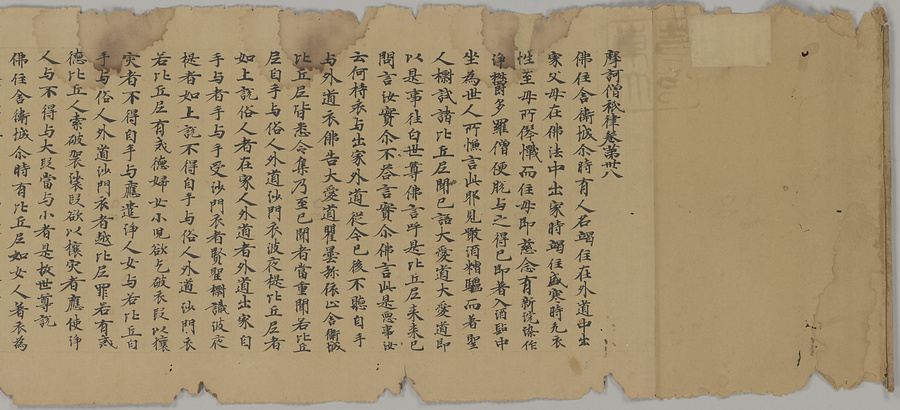 摩訶僧祇律卷第卅八
佛住舍衛城尒時有人名竭住在外道中出
家父母在佛法中出家時竭住盛寒時无衣
往至母所而住母即慈念有新浣染作
淨欝多羅僧便脫与之得已即著入酒店中
坐為世人所言此耶見酒糟驢而著聖
人諸比丘尼聞已語大愛道大愛道即
以是事往白世尊佛言呼是比丘尼来来已
問言汝實尒不荅言實尒佛言此是惡事汝
云何持衣与出家外道從今已後不聽自手
与外道衣佛告大愛道瞿曇弥依止舍衛城
比丘尼皆悉令集乃至已聞者當重聞若比丘
尼自手与俗人外道沙門衣波夜提比丘尼者
如上說俗人者在家人外道者外道出家自
手与者手与手受沙門衣者賢聖㯹識波夜
提者如上說不得自手与俗人外道沙門衣
若比丘尼有戒德婦女小兒欲乞破衣段以攘
灾者不得自手与應遣淨人女与若比丘自
手与俗人外道沙門衣者越比尼罪若有戒
德比丘人索破袈裟段欲以攘灾者應使淨
人与不得与大段當与小者是故世尊說
佛住舍衛城尒時有比丘尼如女人著衣為